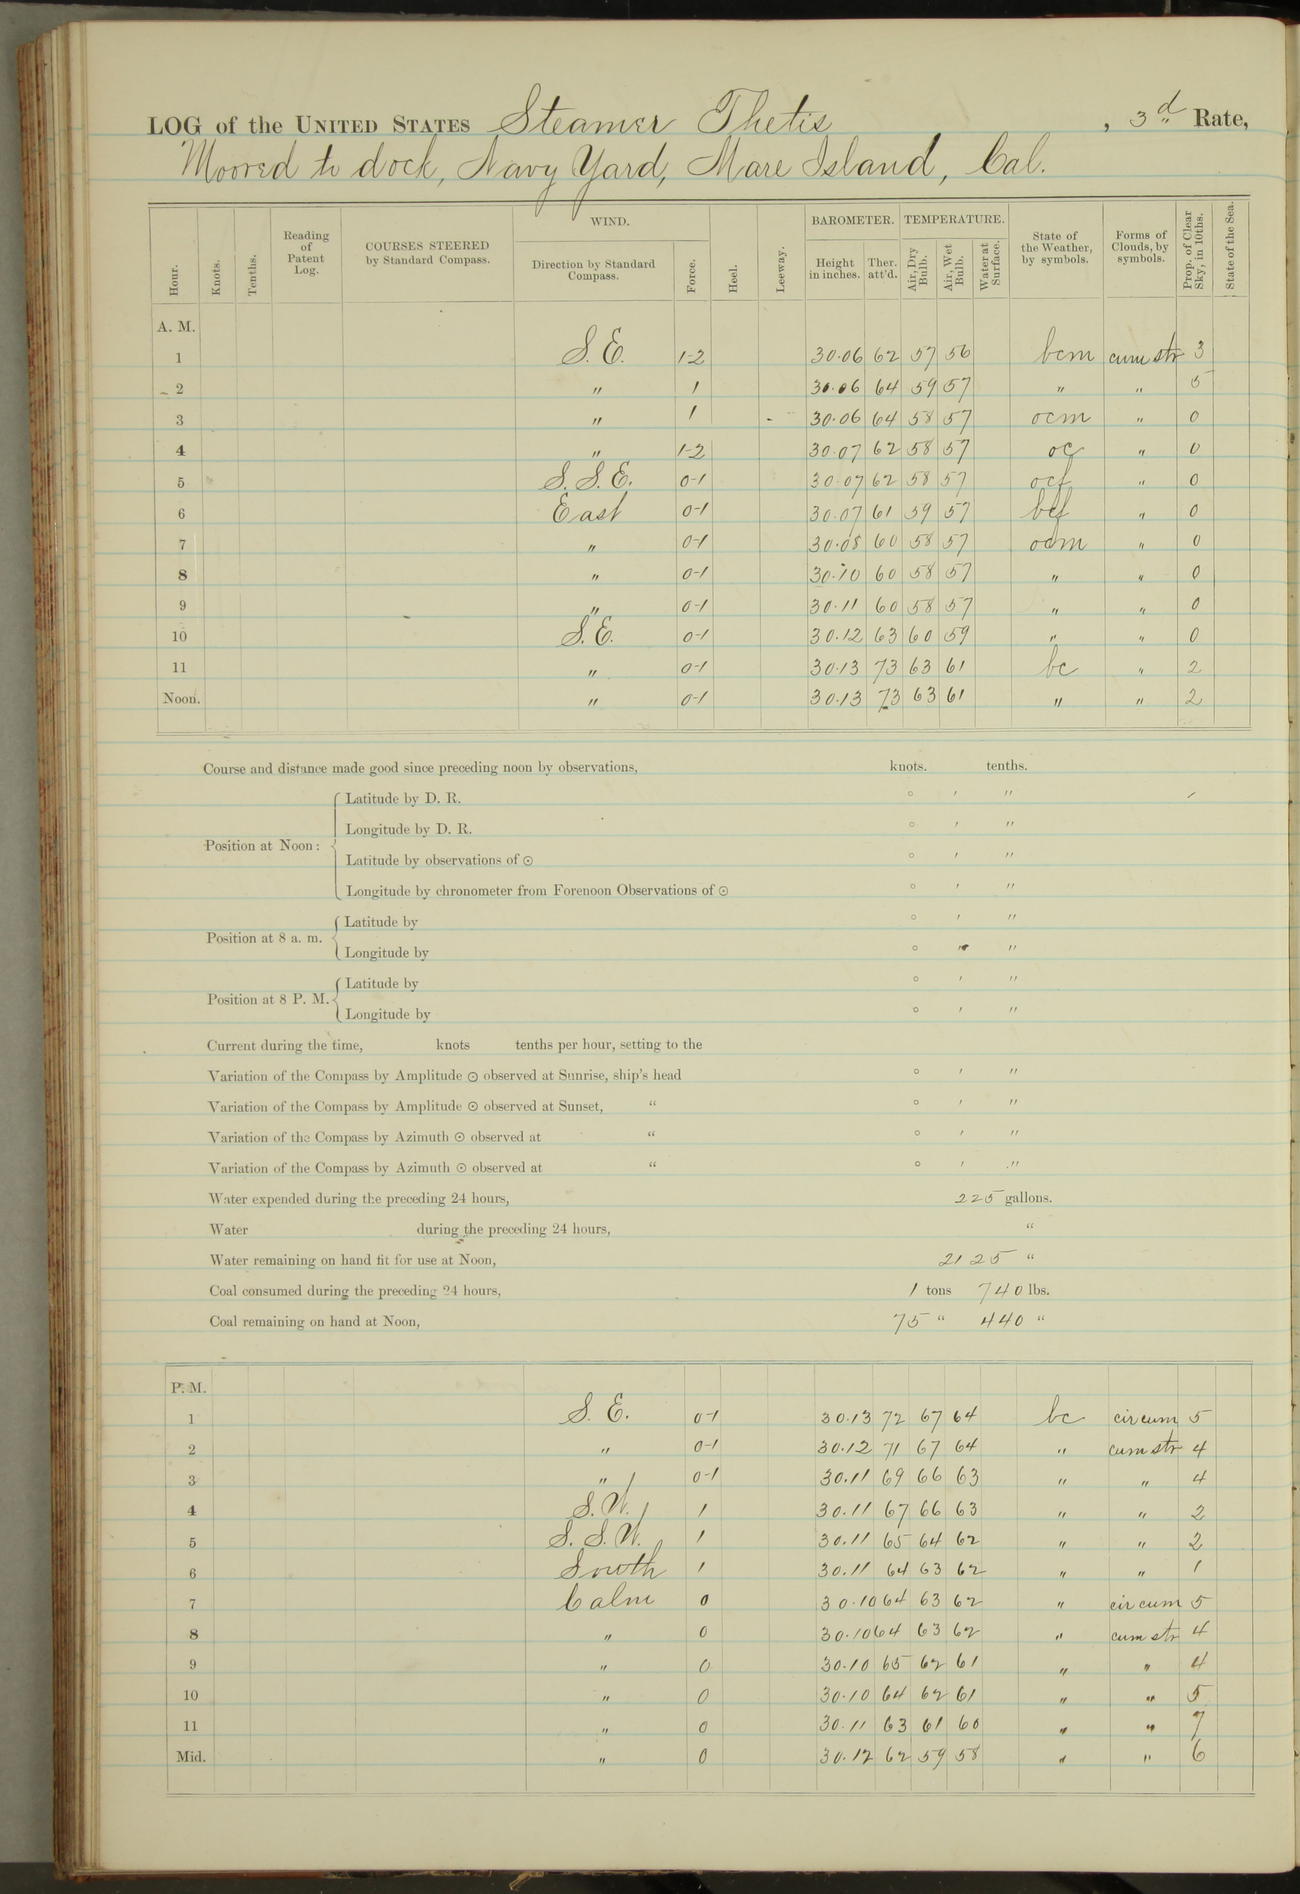 LOG of the UNITED STATES Steamer Thetis, 3d Rate,
Moored to dock, Navy Yard, Mare Island, Cal.
Hour. Knots. Tenths. Reading of Patent Log. COURSES STEERED by Standard Compass. WIND. Direction by Standard Compass. Force. Heel. Leeway. BAROMETER. Height in inches. Ther. att'd. TEMPERATURE. Air, Dry Bulb. Air, Wet Bulb. Water at Surface. State of the Weather, by symbols. Forms of Clouds, by symbols. Prop. of Clear Sky, in 10ths. State of the Sea.
A. M.
1 S.E. 1-2 30.06 62 57 56 bcm cum str 3
2 " 1 30.06 64 59 57 " " 5
3 " 1 30.06 64 58 57 ocm " 0
4 " 1-2 30.07 62 58 57 oc " 0
5 S.S.E. 0-1 30.07 62 58 57 ocf " 0
6 East 0-1 30.07 61 59 57 bcf " 0
7 " 0-1 30.08 60 58 57 " 0
8 " 0-1 30.10 60 58 57 " " 0
9 " 0-1 30.11 60 58 57 " " 0
10 S.E. 0-1 30.12 63 60 59 " " 0
11 " 0-1 30.13 73 63 61 bc " 2
Noon. " 0-1 30.13 73 63 61 " " 2
Course and distance made good since preceding noon by observations, knots. tenths.
Position at Noon:
Latitude by D. R. ° ' "
Longitude by D. R. ° ' "
Latitude by observations of ⊙ ° ' "
Longitude by chronometer from Forenoon Observations of ⊙ ° ' "
Position at 8 a. m.
Latitude by ° ' "
Longitude by ° ' "
Position at 8 P. M.
Latitude by ° ' "
Longitude by ° ' "
Current during the time, knots tenths per hour, setting to the
Variation of the Compass by Amplitude ⊙ observed at Sunrise, ship's head ° ' "
Variation of the Compass by Amplitude ⊙ observed at Sunset, " ° ' "
Variation of the Compass by Azimuth ⊙ observed at " ° ' "
Variation of the Compass by Azimuth ⊙ observed at " ° ' "
Water expended during the preceding 24 hours, 225 gallons.
Water during the preceding 24 hours, "
Water remaining on hand fit for use at Noon, 2125 "
Coal consumed during the preceding 24 hours, 1 tons 740 lbs.
Coal remaining on hand at Noon, 75 " 440 "
P. M.
1 S. E. 0-1 30.13 72 67 64 bc cir cum 5
2 " 0-1 30.12 71 67 64 " cum str 4
3 " 0-1 30.11 69 66 63 " " 4
4 S.W. 1 30.11 67 66 63 " " 2
5 S.S.W. 1 30.11 65 64 62 " " 2
6 South 1 30.11 64 63 62 " " 1
7 Calm 0 30.10 64 63 62 " cir cum 5
8 " 0 30.10 64 63 62 " cum str 4
9 " 0 30.10 65 62 61 " " 4
10 " 0 30.10 64 62 61 " " 5
11 " 0 30.11 63 61 60 " " 7
Mid. " 0 30.12 62 59 58 " " 6